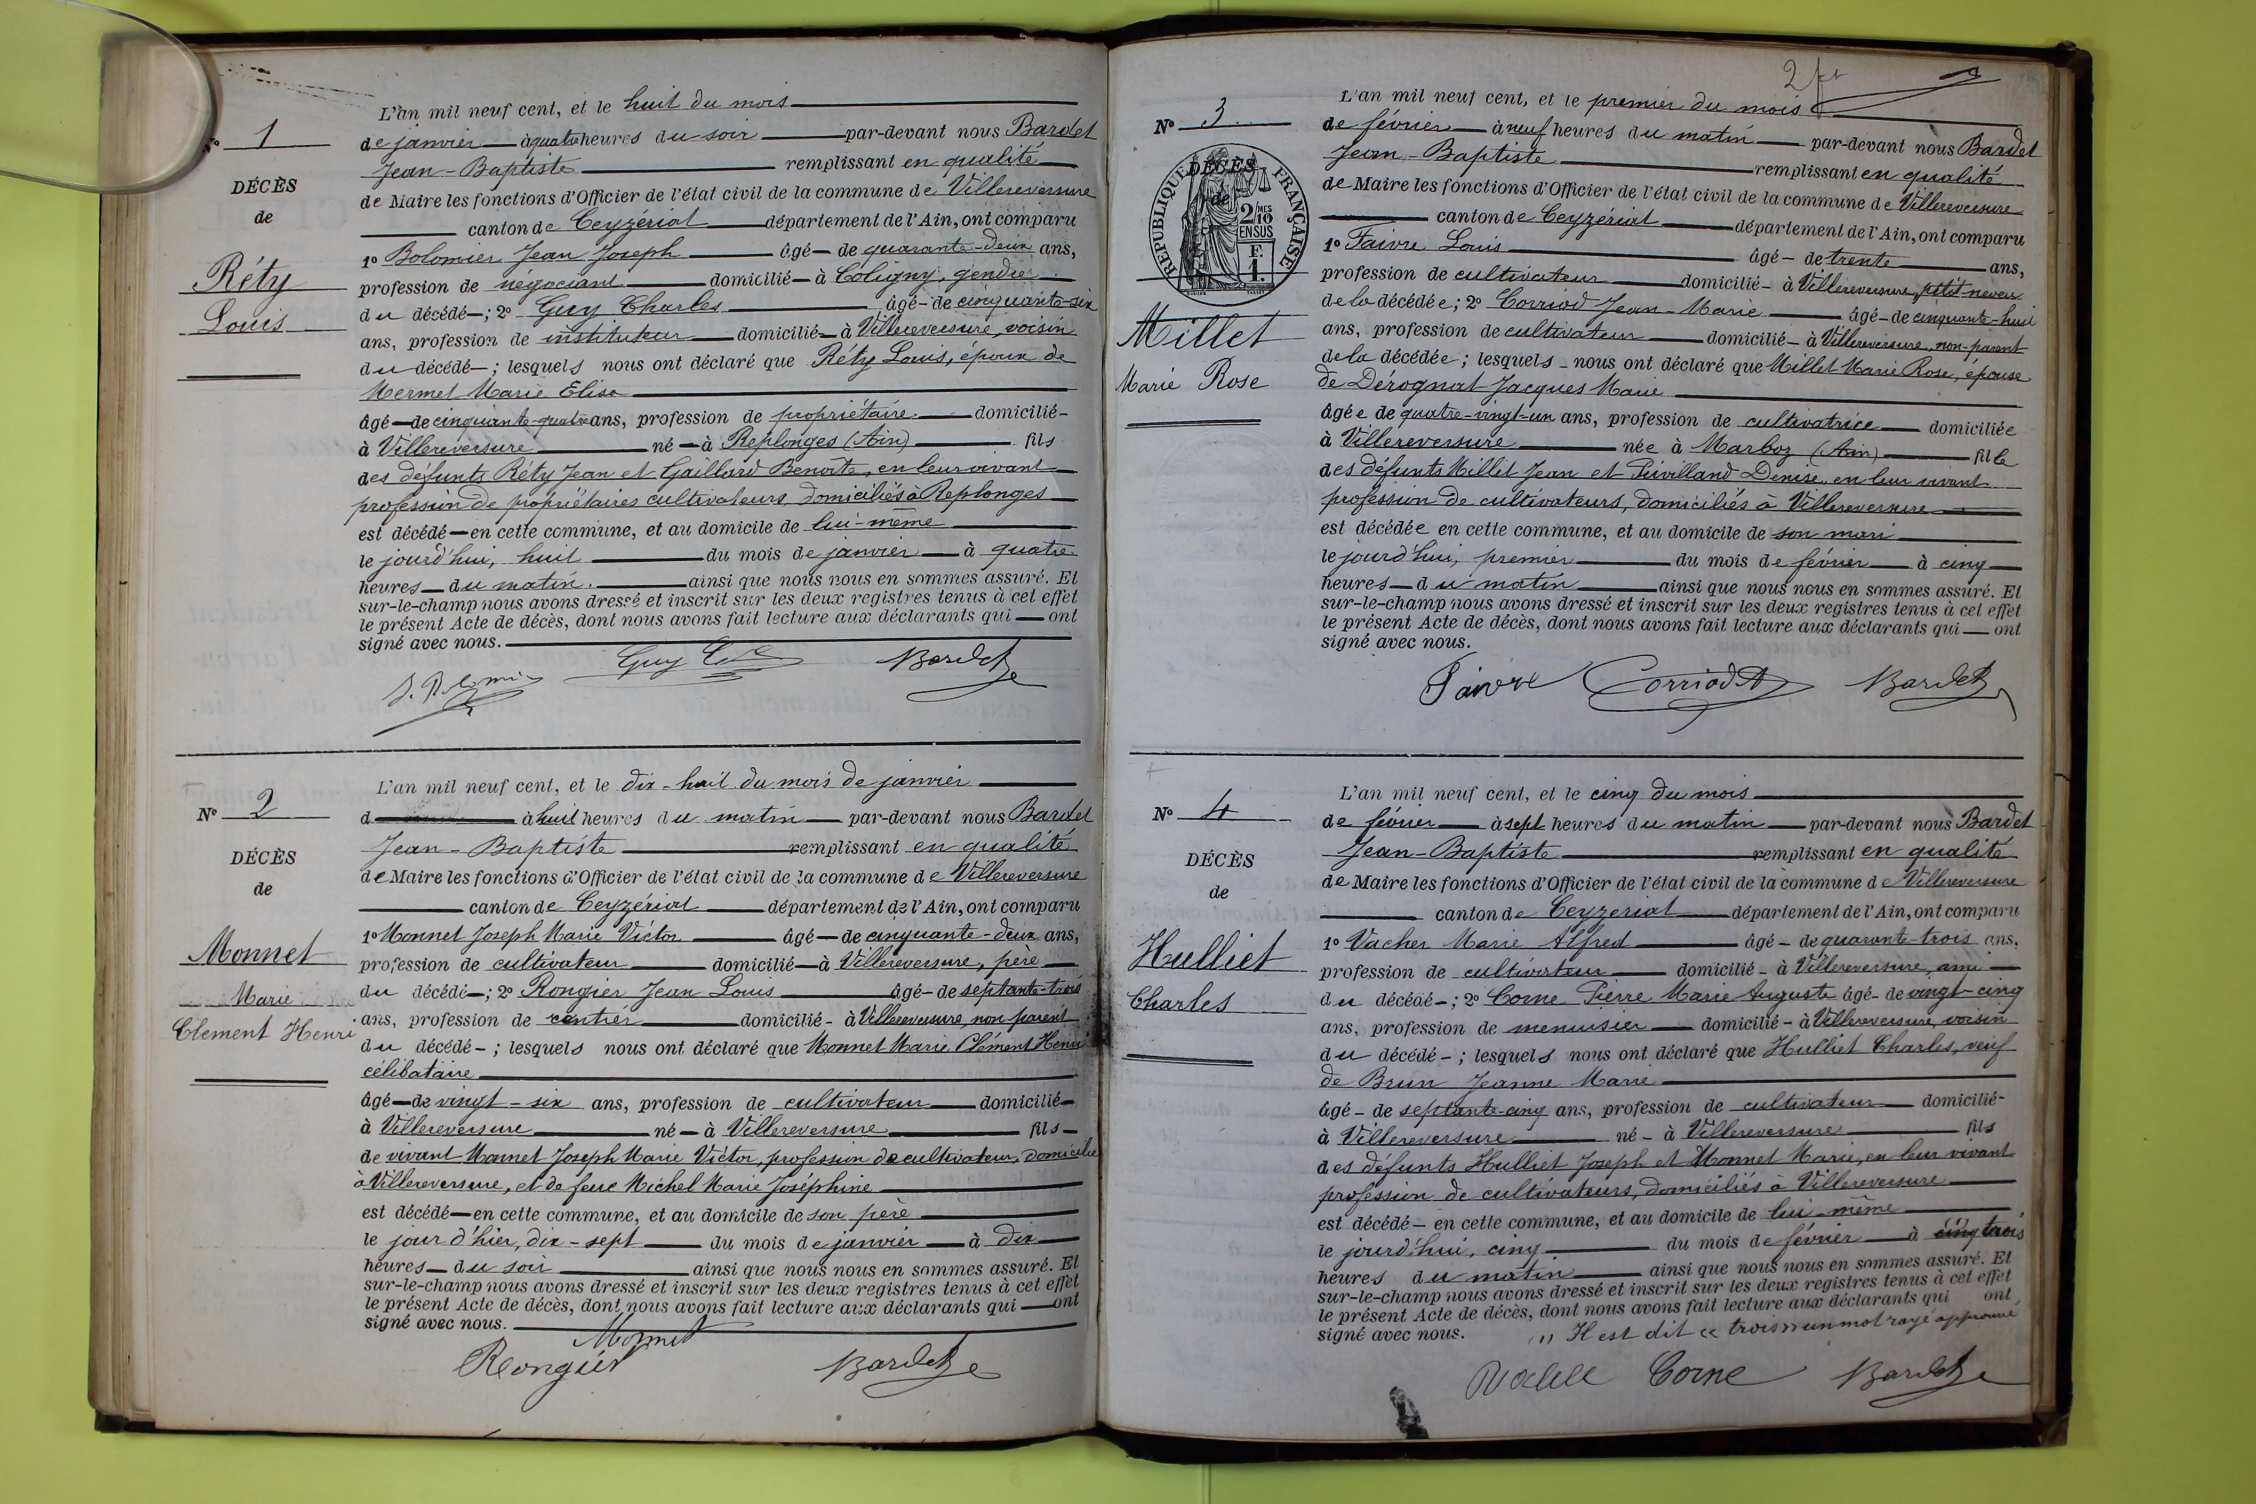 N° 1
DÉCÈS
de
Réty
Louis
L'an mil neuf cent, et le huit du mois
de janvier à quatre heures du soir par-devant nous Bardet
Jean-Baptiste remplissant en qualité
de Maire les fonctions d'Officier de l'état civil de la commune de Villereversure
canton de Ceyzériat département de l'Ain, ont comparu
1° Bolomier Jean Joseph âgé de quarante-deux ans,
profession de négociant domicilié à Coligny, gendre
du décédé ; 2° Guy Charles âgé de cinquante-six
ans, profession de instituteur domicilié à Villereversure, voisin
du décédé ; lesquels nous ont déclaré que Réty Louis, époux de
Mermet Marie Elise
âgé de cinquante-quatre ans, profession de propriétaire domicilié
à Villereversure né à Replonges (Ain) fils
des défunts Réty Jean et Gaillard Benoîte, en leur vivant
profession de propriétaires cultivateurs, domiciliés à Replonges
est décédé en cette commune, et au domicile de lui-même
le jourd'hui, huit du mois de janvier à quatre
heures du matin. ainsi que nous nous en sommes assuré. Et
sur-le-champ nous avons dressé et inscrit sur les deux registres tenus à cet effet
le présent Acte de décès, dont nous avons fait lecture aux déclarants qui ont
signé avec nous.
J. Bolomier Guy Bardet
N° 2
DÉCÈS
de
Monnet
Marie
Clement Henri
L'an mil neuf cent, et le dix-huit du mois de janvier
d à huit heures du matin par-devant nous Bardet
Jean-Baptiste remplissant en qualité
de Maire les fonctions d'Officier de l'état civil de la commune de Villereversure
canton de Ceyzériat département de l'Ain, ont comparu
1° Monnet Joseph Marie Victor âgé de cinquante-deux ans,
profession de cultivateur domicilié à Villereversure, père
du décédé ; 2° Rongier Jean Louis âgé de septante-trois
ans, profession de rentier domicilié à Villereversure, non parent
du décédé ; lesquels nous ont déclaré que Monnet Marie Clément Henri
célibataire
âgé de vingt-six ans, profession de cultivateur domicilié
à Villereversure né à Villereversure fils
de vivant Monnet Joseph Marie Victor, profession de cultivateur, domicilié
à Villereversure, et de feue Michel Marie Joséphine
est décédé en cette commune, et au domicile de son père
le jour d'hier, dix-sept du mois de janvier à dix
heures du soir ainsi que nous nous en sommes assuré. Et
sur-le-champ nous avons dressé et inscrit sur les deux registres tenus à cet effet
le présent Acte de décès, dont nous avons fait lecture aux déclarants qui ont
signé avec nous.
Monnet
Rongier Bardet
2
N° 3
DÉCÈS
de
RÉPUBLIQUE FRANÇAISE
2/10 MES
EN SUS
F.
1.
Millet
Marie Rose
L'an mil neuf cent, et le premier du mois
de février à neuf heures du matin par-devant nous Bardet
Jean-Baptiste remplissant en qualité
de Maire les fonctions d'Officier de l'état civil de la commune de Villereversure
canton de Ceyzériat département de l'Ain, ont comparu
1° Faivre Louis âgé de trente ans,
profession de cultivateur domicilié à Villereversure, petit neveu
de la décédée ; 2° Corriod Jean-Marie âgé de cinquante-huit
ans, profession de cultivateur domicilié à Villereversure, non-parent
de la décédée ; lesquels nous ont déclaré que Millet Marie Rose, épouse
de Dérognat Jacques Marie
âgée de quatre-vingt-un ans, profession de cultivatrice domiciliée
à Villereversure née à Marboz (Ain) fille
des défunts Millet Jean et Pirvilland Denise, en leur vivant
profession de cultivateurs, domiciliés à Villereversure
est décédée en cette commune, et au domicile de son mari
le jourd'hui, premier du mois de février à cinq
heures du matin ainsi que nous nous en sommes assuré. Et
sur-le-champ nous avons dressé et inscrit sur les deux registres tenus à cet effet
le présent Acte de décès, dont nous avons fait lecture aux déclarants qui ont
signé avec nous.
Faivre Corriod Bardet
N° 4
DÉCÈS
de
Hulliet
Charles
L'an mil neuf cent, et le cinq du mois
de février à sept heures du matin par-devant nous Bardet
Jean-Baptiste remplissant en qualité
de Maire les fonctions d'Officier de l'état civil de la commune de Villereversure
canton de Ceyzeriat département de l'Ain, ont comparu
1° Vacher Marie Alfred âgé de quarante-trois ans,
profession de cultivateur domicilié à Villereversure, ami
du décédé ; 2° Corne Pierre Marie Auguste âgé de vingt-cinq
ans, profession de menuisier domicilié à Villereversure, voisin
du décédé ; lesquels nous ont déclaré que Hulliet Charles, veuf
de Brun Jeanne Marie
âgé de septante-cinq ans, profession de cultivateur domicilié
à Villereversure né à Villereversure fils
des défunts Hulliet Joseph et Monnet Marie, en leur vivant
profession de cultivateurs, domiciliés à Villereversure
est décédé en cette commune, et au domicile de lui-même
le jourd'hui, cinq du mois de février à cinq trois
heures du matin ainsi que nous nous en sommes assuré. Et
sur-le-champ nous avons dressé et inscrit sur les deux registres tenus à cet effet
le présent Acte de décès, dont nous avons fait lecture aux déclarants qui ont
signé avec nous. Il est dit « trois » un mot rayé approuvé
Corne Bardet